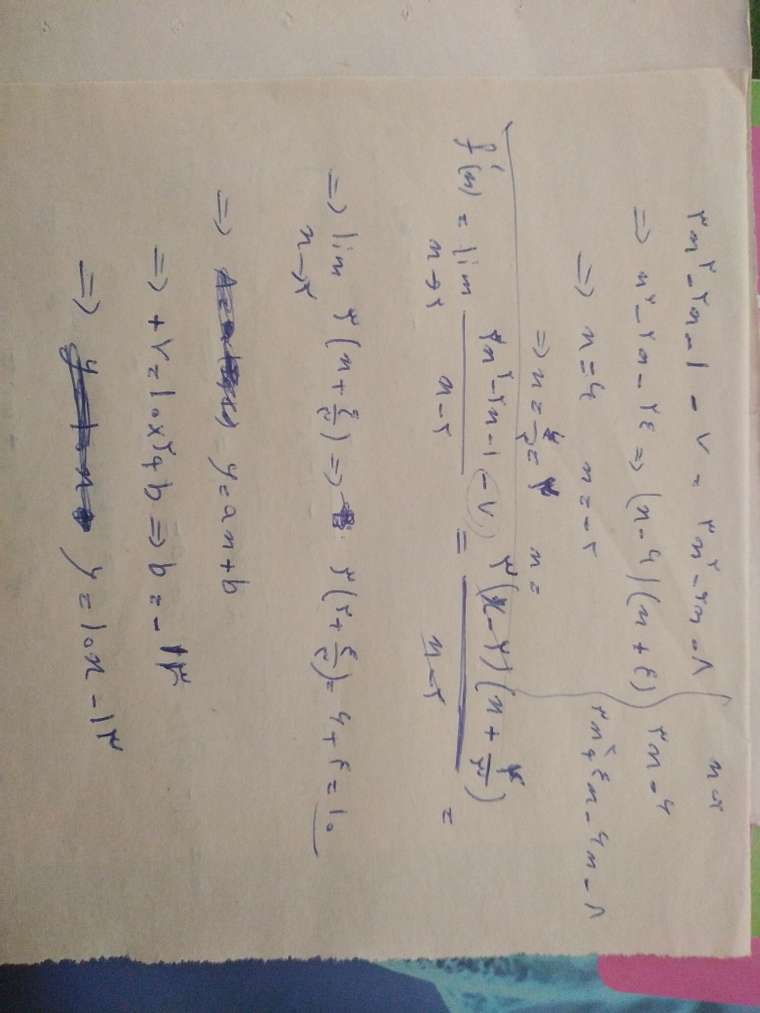 ۳x² - ۲x - ۱ - ۷ = ۳x² - ۲x - ۸
=> x² - ۲x - ۲۴ => (x - ۶)(x + ۴)
۳x - ۶
=> x = ۶ x = -۴
۳x² + ۴x - ۶x - ۸
x =
f'(x) = lim x→۲ ۳x² - ۲x - ۱ - ۷ / x - ۲ = ۳(x - ۲)(x + ۴/۳) / x - ۲ =
=> lim x→۲ ۳(x + ۴/۳) => ۳(۲ + ۴/۳) = ۶ + ۴ = ۱۰
=> y = ax + b
=> +۷ = ۱۰×۲ + b => b = -۱۳
=> y = ۱۰x - ۱۳